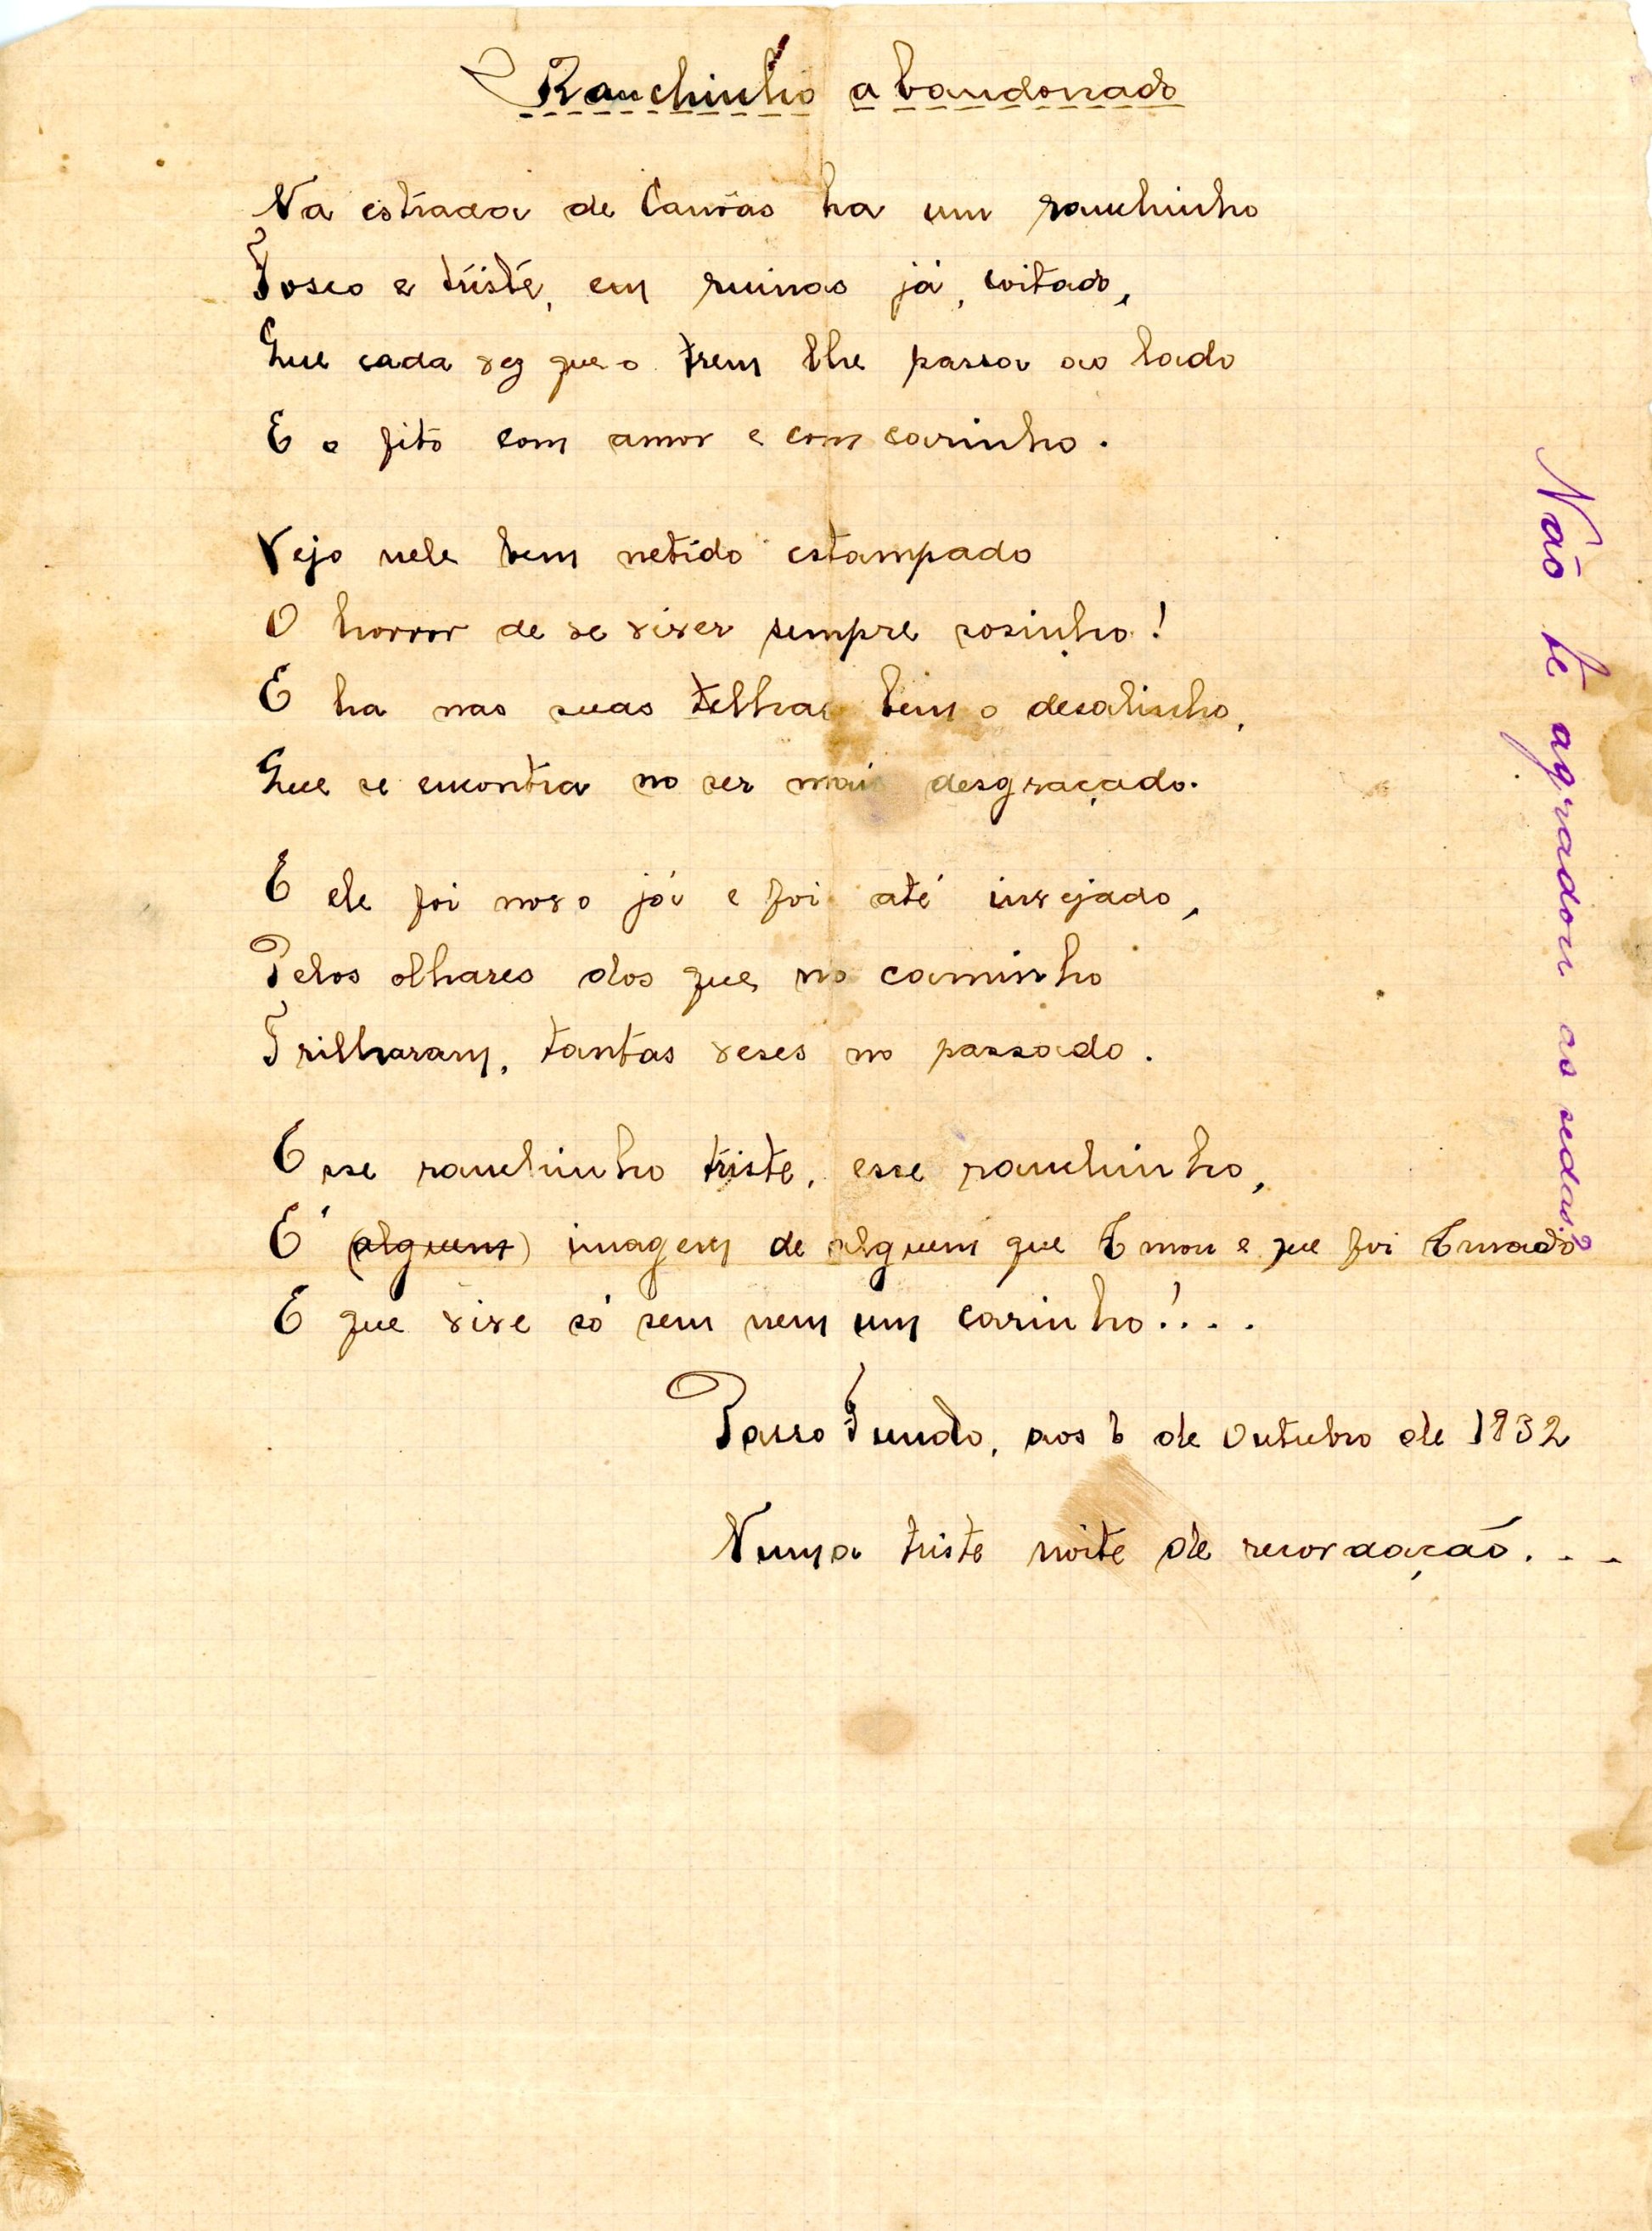 Ranchinho abandonado
Na estrada de Canôas ha um ranchinho
Tosco e triste, em ruinas já, coitado,
Que cada vez que o trem lhe passa ao lado
E o fito com amor e com carinho.
Vejo nele bem netido estampado
O horror de se viver sempre sosinho!
E ha nas suas telhas bem o desalinho,
Que se encontra no ser mais desgraçado.
E ele foi novo já e foi até invejado,
Pelos olhares dos que no caminho
Trilharam, tantas veses no passado.
Esse ranchinho triste, esse ranchinho,
E' (alguem) imagem de alguem que Amou e que foi Amado
E que vive só sem nem um carinho!...
Passo Fundo, aos 6 de Outubro de 1932
Numa triste noite de recordação...
Não te agradou as sedas?